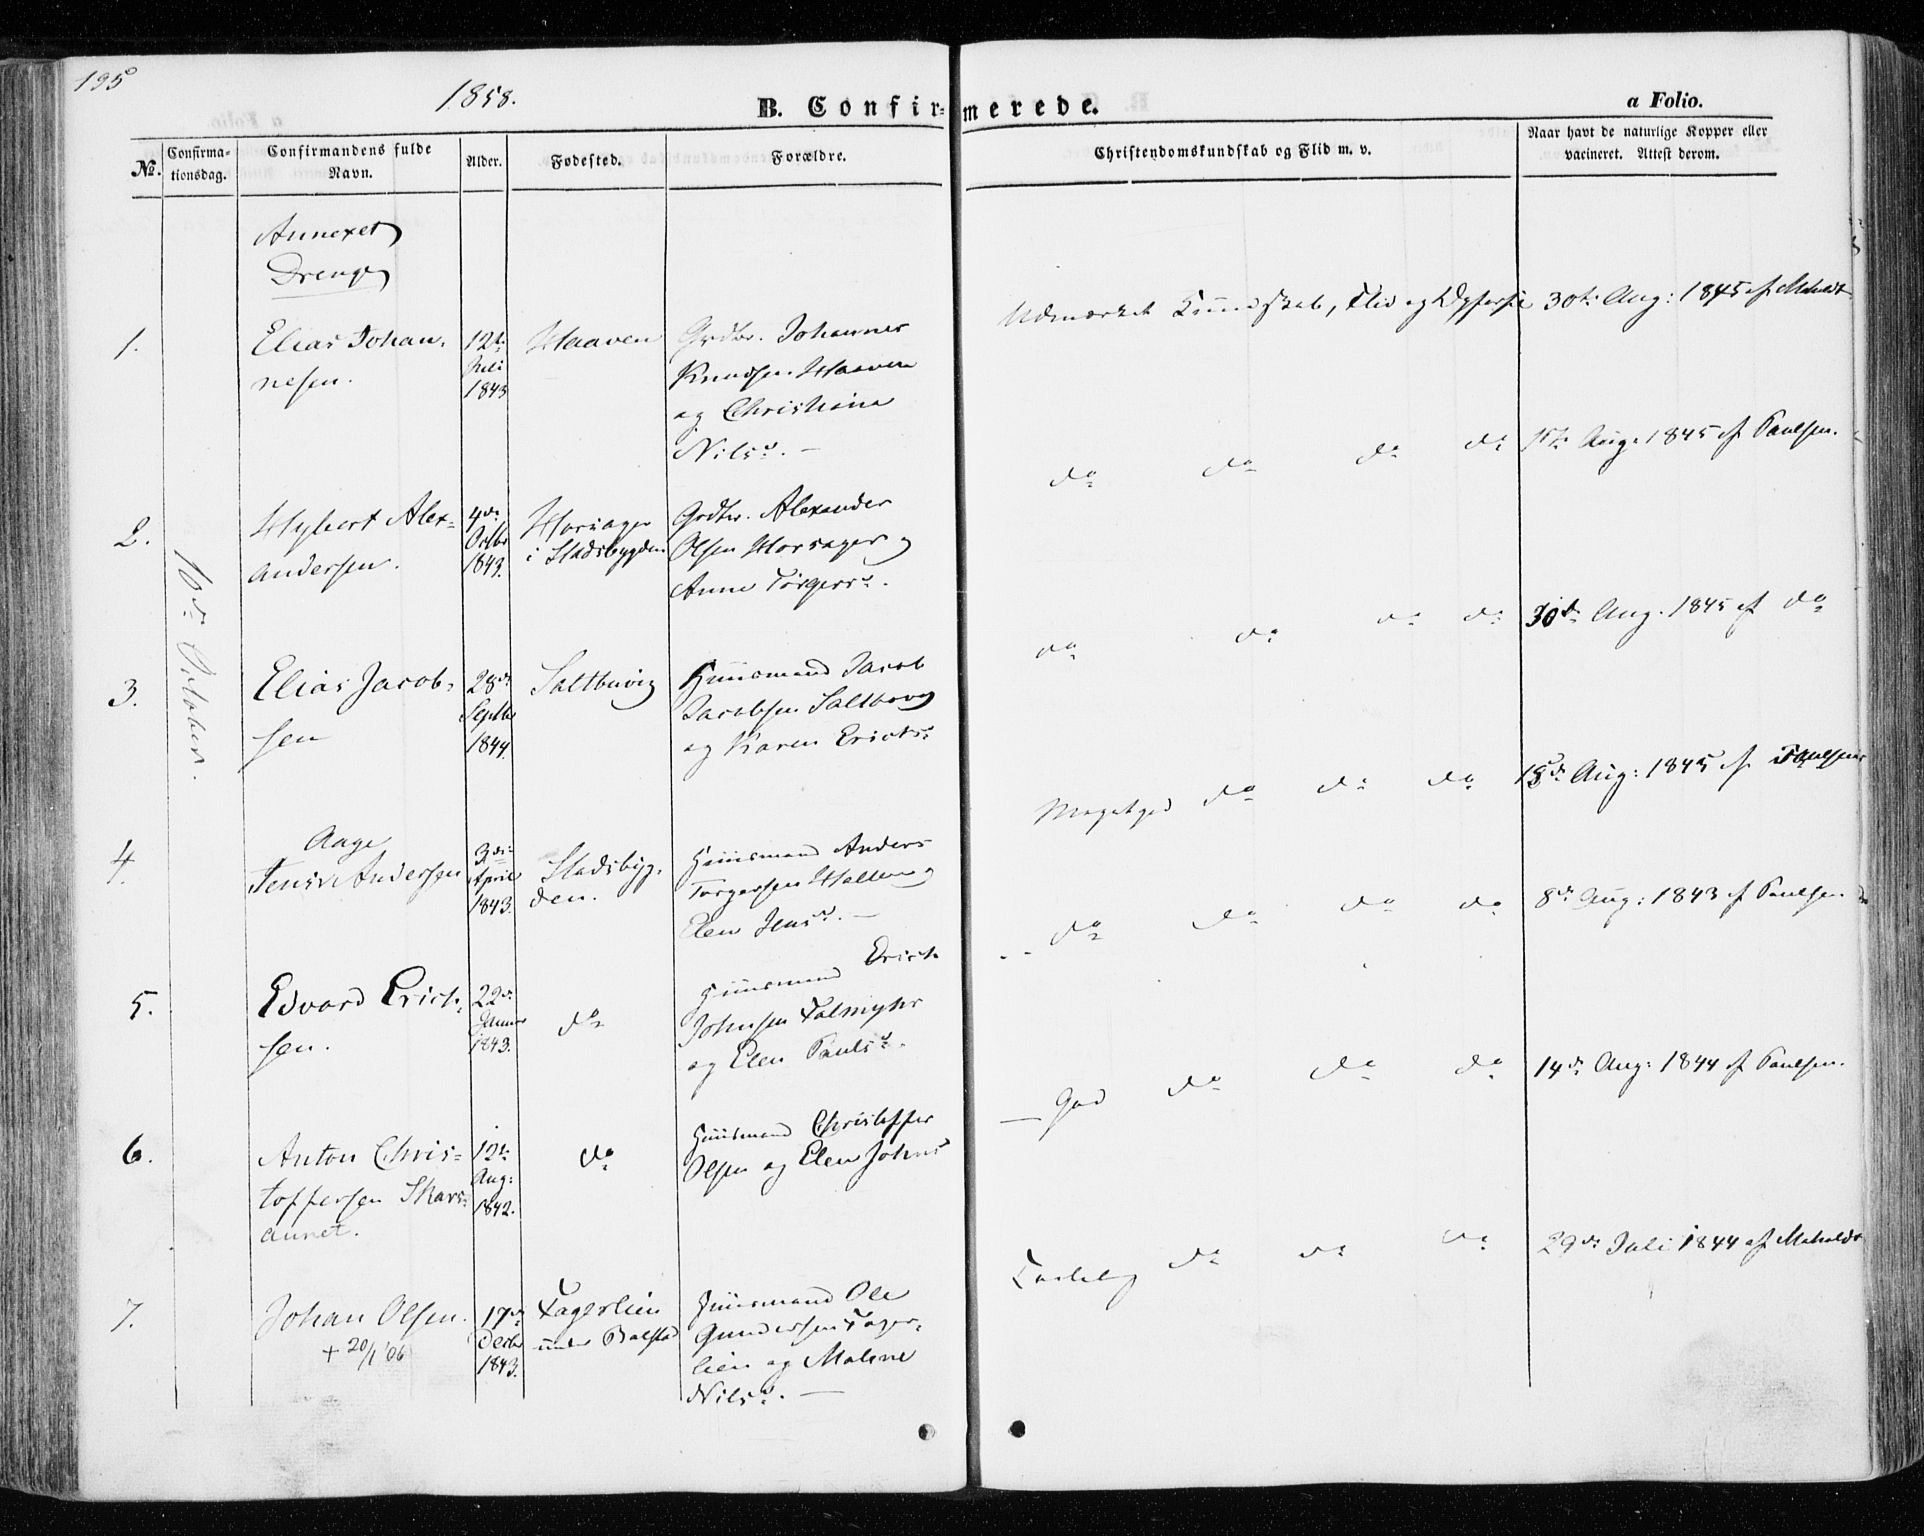 195
1858.
B. Confirmerede.
a Folio.
No.
Confirmationsdag.
Confirmandens fulde Navn.
Alder.
Fødested.
Forældre.
Christendomskundskab og Flid m. v.
Naar havt de naturlige Kopper eller vacineret. Attest derom.
Annexet
Drenge
16de October.
1.
Elias Johan-
nesen.
12te
Juli
1843
Haaven
Grdbr. Johannes
Knudsen Haaven
og Christiana
Nilsd. —
Udmærket Kundskab, Flid og
30te Aug: 1845 af
2.
Hybert Alex-
andersen.
4de
Octbr
1843.
Horsager
i Stadsbygden
Grdbr. Alexander
Olsen Horsager og
Anne Torgersd.
do do do do
Aug: 1845 af Paulsen.
3.
Elias Jacob-
sen
28de
Septbr
1844.
Saltbuvig
Huusmand Jacob
Jacobsen
og Karen Ericksd
do do do do
30te Aug. 1845 af do
4.
Aage
Andersen
3die
April
1843.
Stadsbyg-
den.
Huusmand Anders
Torgersen og
Elen Jensd. —
Megetgod do do do
Aug: 1845 af Paulsen
5.
Edvard Erick-
sen.
22de
Januar
1843.
do
Huusmand Erick
Johnsen
og Elen Paulsd.
do do do do
8de Aug: 1843 af Paulsen
6.
Anton Chris-
toffersen Skars-
aunet.
12te
Aug:
1842.
do
Huusmand Christoffer
Olsen og Elen Johnsd
— God do do do
14de Aug: 1844 af Paulsen.
7.
Johan Olsen.
+ 20/1 '06
17de
Decbr
1843.
Fagerlien
under
Huusmand Ole
Gundersen Fager-
lien og Malene
Nilsd. —
do do do
29de Juli 1844 af